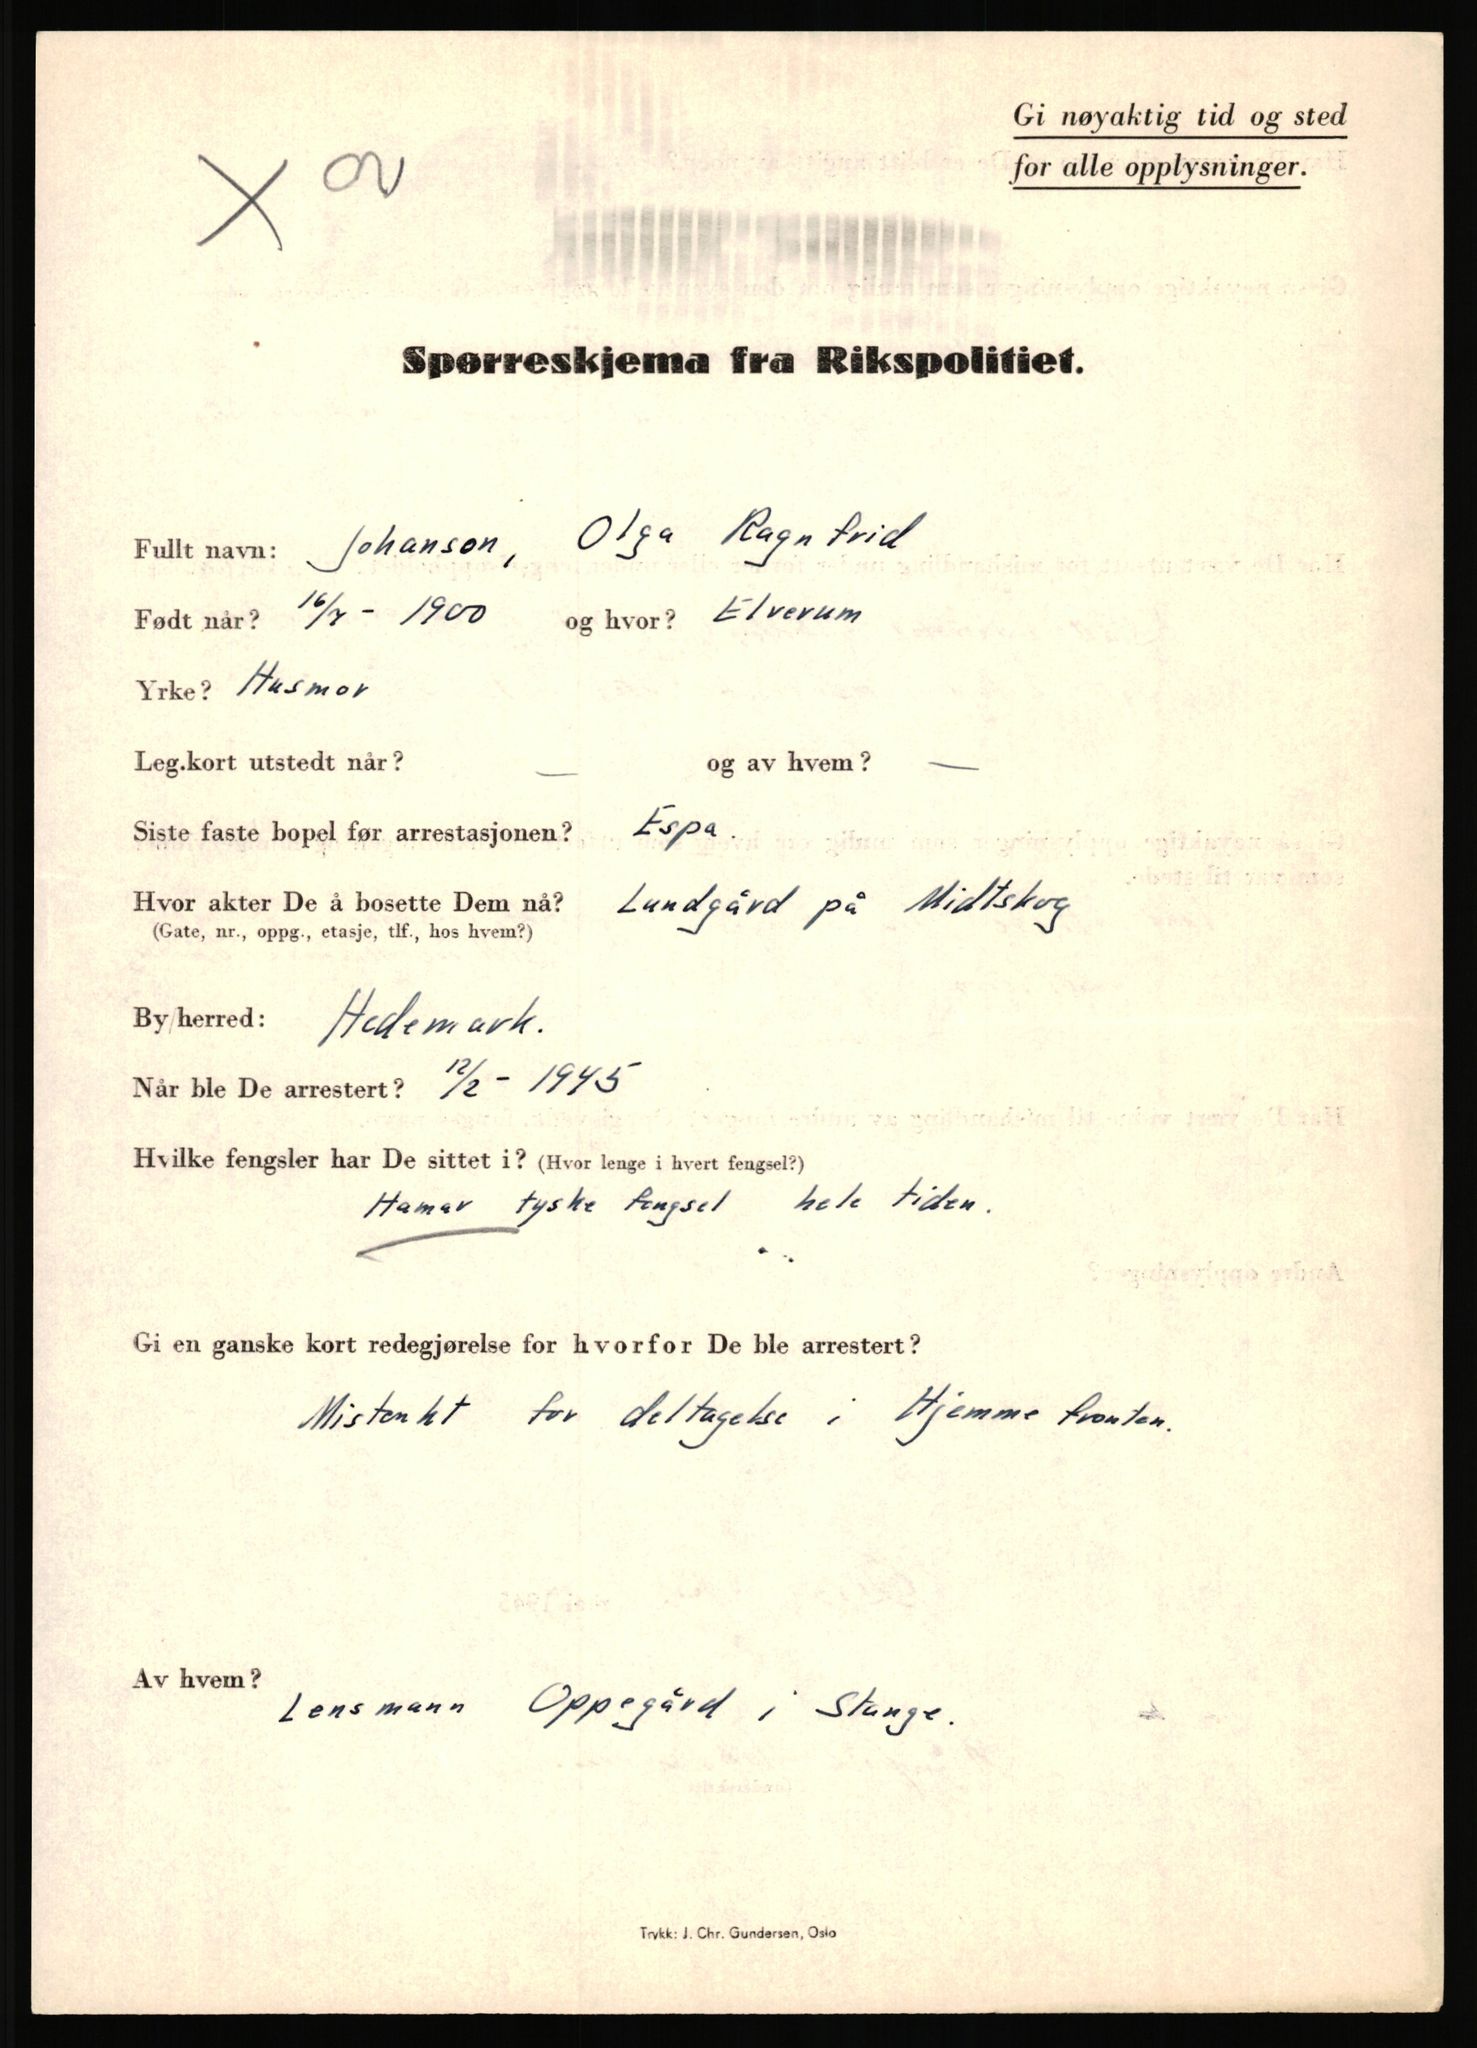 Gi nøyaktig tid og sted
for alle opplysninger.
X
Spørreskjema fra Rikspolitiet.
Fullt navn: Johanson, Olga Ragnfrid
Født når? 16/7 - 1900 og hvor? Elverum
Yrke? Husmor
Leg.kort utstedt når? — og av hvem? —
Siste faste bopel før arrestasjonen? Espa.
Hvor akter De å bosette Dem nå? Lundgård på Midtskog
(Gate, nr., oppg., etasje, tlf., hos hvem?)
By/herred: Hedemark.
Når ble De arrestert? 12/2 - 1945
Hvilke fengsler har De sittet i? (Hvor lenge i hvert fengsel?)
Hamar tyske fengsel hele tiden.
Gi en ganske kort redegjørelse for hvorfor De ble arrestert?
Mistenkt for deltagelse i Hjemmefronten.
Av hvem?
Lensmann Oppegård i Stange.
Trykk: J. Chr. Gundersen, Oslo